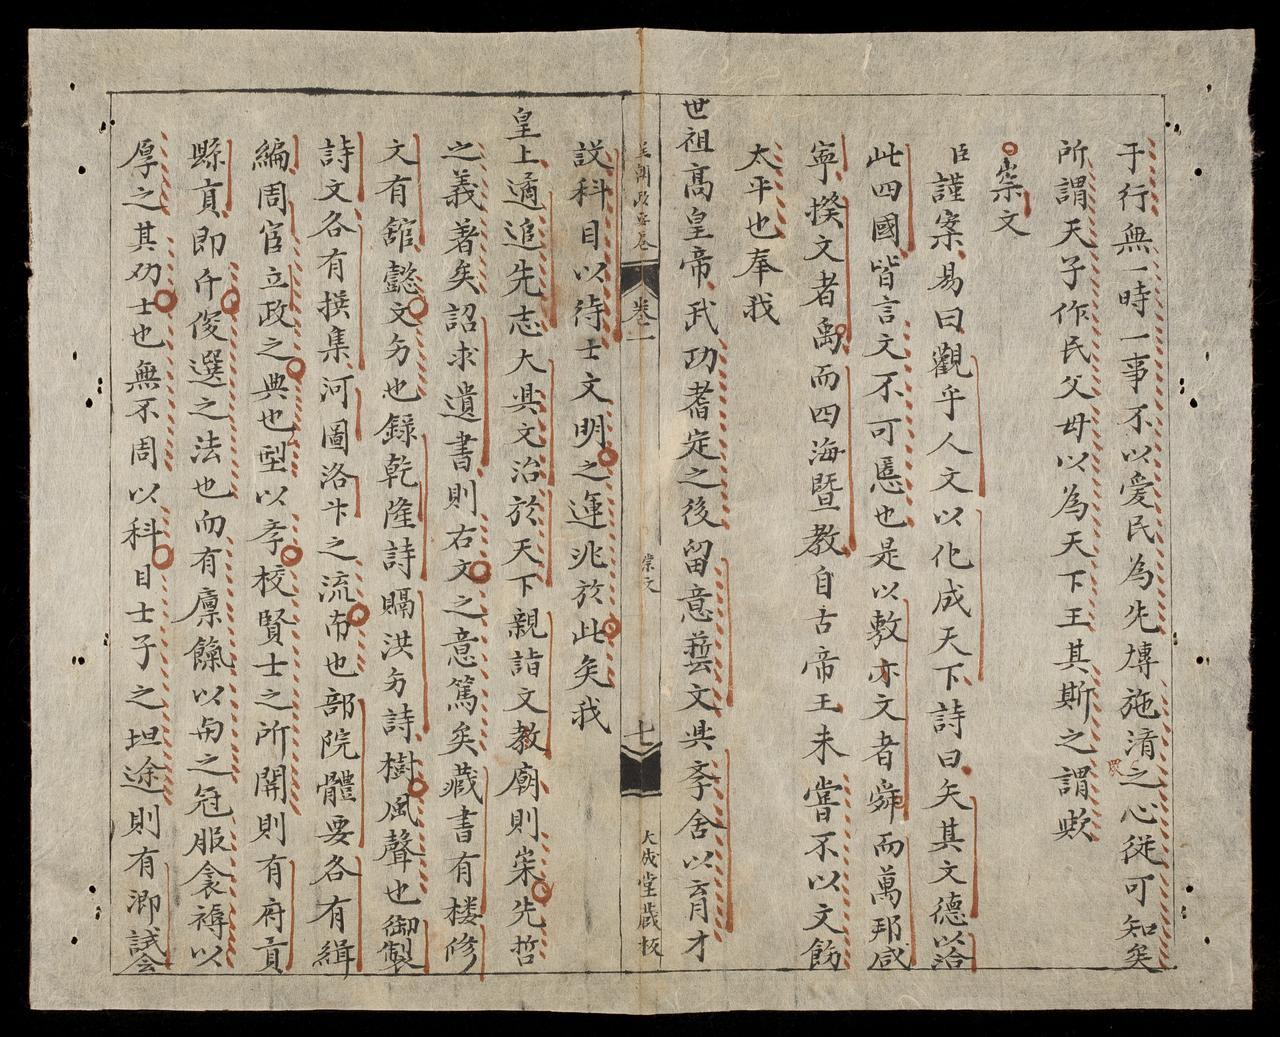 于行無一時一事不以爱民為先慱施濟之心従可知矣
衆
所謂天子作民父母以為天下王其斯之謂歟
崇文
臣謹案易曰觀乎人文以化成天下詩曰矢其文德以洽
此四國皆言文不可慝也是以敷亦文者舜而萬邦咸
寕揆文者禹而四海曁教自古帝王未嘗不以文飭
太平也奉我
世祖髙皇帝武功耆定之後留意藝文興斈舍以育才
卷一
崇文
七
大成堂蔵板
説科目以待士文明之運兆於此矣我
皇上遹追先志大興文治於天下親詣文教廟則崇先哲
之義著矣詔求遺書則右文之意篤矣藏書有楼修
文有舘懿文分也錄乾隆詩賜洪分詩樹風聲也御製
詩文各有撰集河圖洛书之流布也部院體要各有緝
編周官立政之典也型以斈校賢士之所開則有府貢
縣貢即升俊選之法也而有廪餼以安之冠服衾褥以
厚之其劝士也無不周以科目士子之坦途則有鄉試会